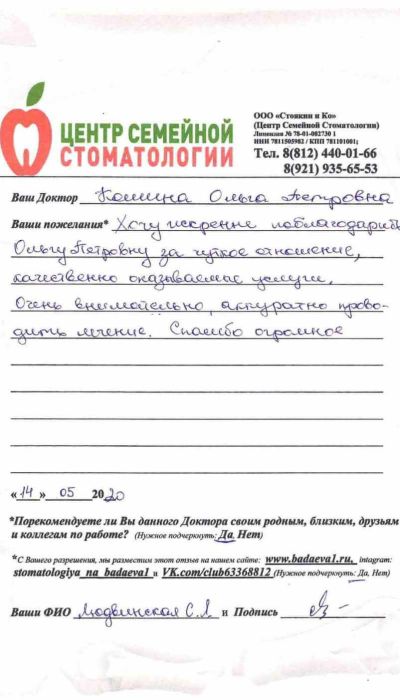 ЦЕНТР СЕМЕЙНОЙ
СТОМАТОЛОГИИ
ООО «Стоякин и Ко»
(Центр Семейной Стоматологии)
Лицензия № 78-01-002730 1
ИНН 7811505982 / КПП 781101001;
Тел. 8(812) 440-01-66
8(921) 935-65-53
Ваш Доктор Комина Ольга Петровна
Ваши пожелания* Хочу искренне поблагодарить
Ольгу Петровну за чуткое отношение,
качественно оказываемые услуги.
Очень внимательно, аккуратно прово-
дить лечение. Спасибо огромное
«14» 05 2020
*Порекомендуете ли Вы данного Доктора своим родным, близким, друзьям
и коллегам по работе? (Нужное подчеркнуть: Да, Нет)
*С Вашего разрешения, мы разместим этот отзыв на нашем сайте: www.badaeva1.ru, intagram:
stomatologiya_na_badaeva1 и VK.com/club63368812 (Нужное подчеркнуть: Да, Нет)
Ваши ФИО Людвинская С.Л и Подпись